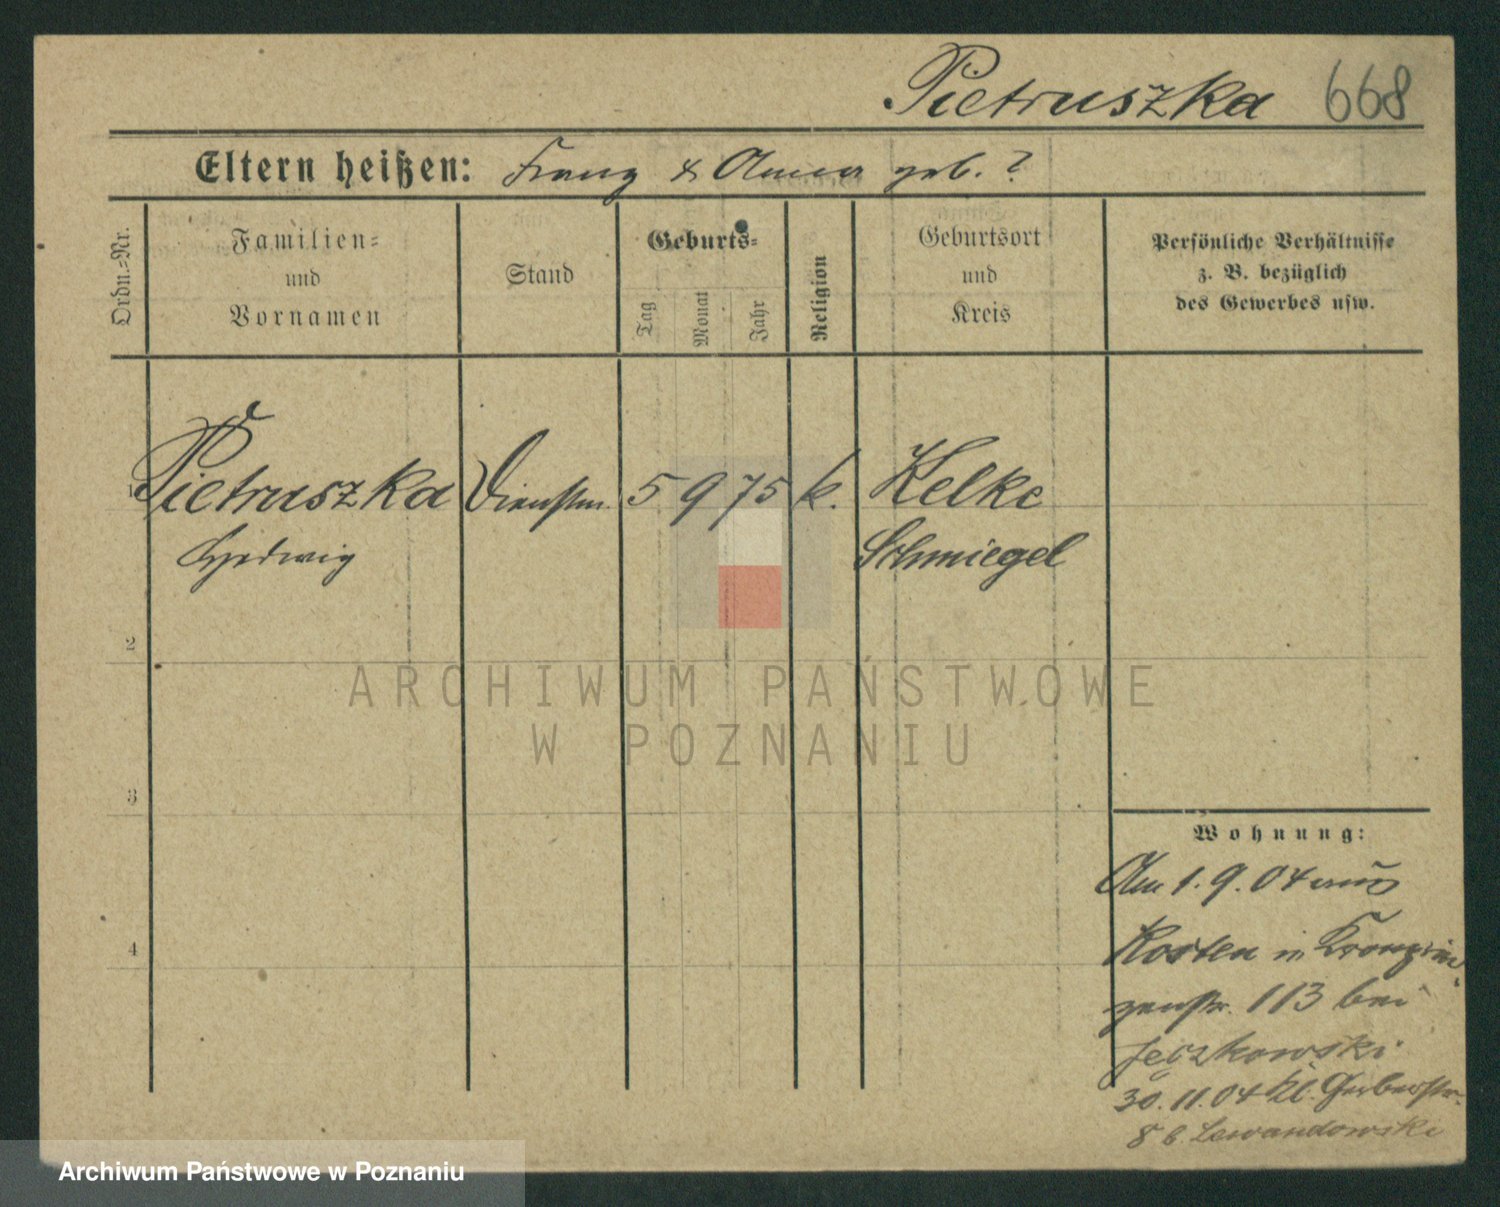 Pietruszka 668
Eltern heißen: Franz & Anna geb. ?
Ordn.=Nr.
Familien=
und
Vornamen
Stand
Geburts=
Tag
Monat
Jahr
Religion
Geburtsort
und
Kreis
Persönliche Verhältnisse
z. B. bezüglich
des Gewerbes usw.
1 Pietruszka Dienstm. 5 9 75 k. Kelke
Hedwig Schmiegel
2
3
4
ARCHIWUM PAŃSTWOWE
W POZNANIU
Wohnung:
Am 1.9.04 aus
Kosten in Kronprin
zenstr. 113 bei
Jęczkowski
30.11.04 Kl. Gerberstr.
8 b. Lewandowski
Archiwum Państwowe w Poznaniu